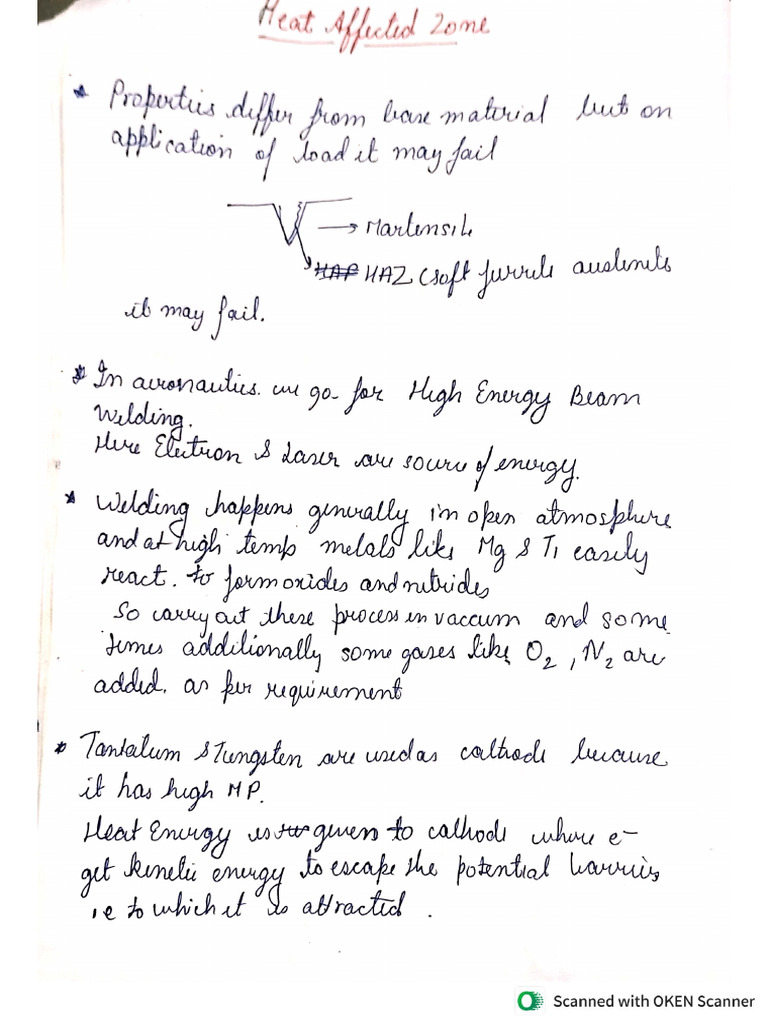 Heat Affected Zone
* Properties differ from base material but on
application of load it may fail
→ Martensite
HAZ (soft ferrite austenite
it may fail.
* In aeronautics we go for High Energy Beam
Welding.
Here Electron & Laser are source of energy.
* Welding happens generally in open atmosphere
and at high temp metals like Mg & Ti easily
react. to form oxides and nitrides
So carry out these process in vaccum and some
times additionally some gases like O2, N2 are
added. as per requirement
* Tantalum & Tungsten are used as cathode because
it has high MP.
Heat Energy is given to cathode where e-
get kinetic energy to escape the potential barrier
ie to which it is attracted.
Scanned with OKEN Scanner